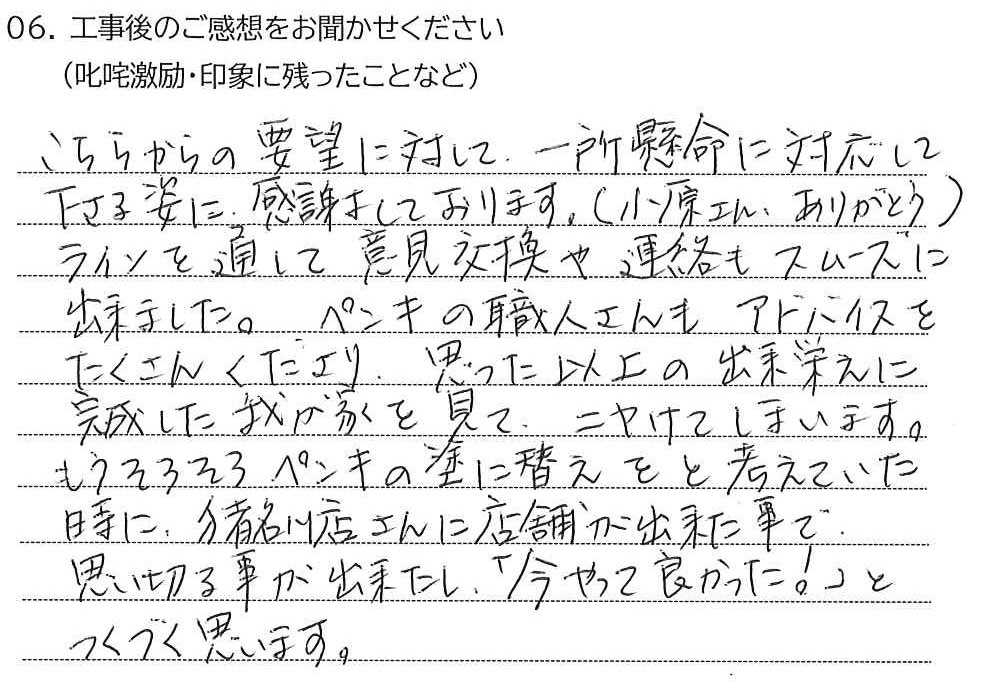 06. 工事後のご感想をお聞かせください
（叱咤激励・印象に残ったことなど）
こちらからの要望に対して、一所懸命に対応して
下さる姿に、感謝をしております。（小原さん、ありがとう）
ラインを通して意見交換や連絡もスムーズに
出来ました。 ペンキの職人さんも アドバイスを
たくさんくださり、思った以上の出来栄えに
完成した我が家を見て、ニヤけてしまいます。
もうそろそろペンキの塗に替えをと考えていた
時に、猪名川店さんに店舗が出来た事で、
思い切る事が出来たし、「今やって良かった！」と
つくづく思います。